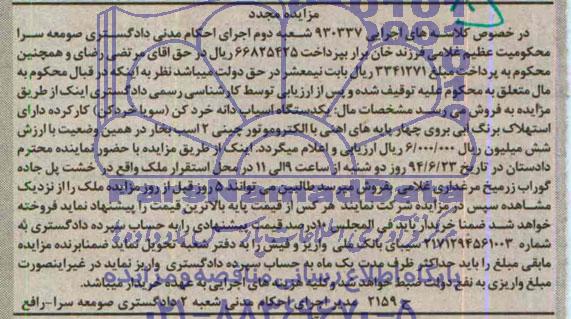 مزایده مجدد
در خصوص کلاسه های اجرایی ۹۳۰۳۳۷ شعبه دوم اجرای احکام مدنی دادگستری صومعه سرا
محکومیت عظیم غلامی فرزند خان برار بپرداخت ۶۶۸۲۵۴۲۵ ریال در حق اقای مرتضی رضای و همچنین
محکوم به پرداخت مبلغ ۳۳۴۱۲۷۱ ریال بابت نیمعشر در حق دولت میباشد نظر به اینکه در قبال محکوم به
مال متعلق به محکوم علیه توقیف شده و پس از ارزیابی توسط کارشناسی رسمی دادگستری اینک از طریق
مزایده به فروش می رسد. مشخصات مال: یکدستگاه اسیاب دانه خرد کن (سویا خردکن) کارکرده دارای
استهلاک برنگ آبی بروی چهار پایه های اهنی با الکتروموتور چینی ۲ اسب بخار در همین وضعیت با ارزش
شش میلیون ریال ۶/۰۰۰/۰۰۰ ریال ارزیابی و اعلام میگردد. اینک از طریق مزایده با حضور نماینده محترم
دادستان در تاریخ ۹۴/۶/۲۳ روز دو شنبه از ساعت ۹ الی ۱۱ در محل استقرار ملک واقع در خشت پل جاده
گوراب زرمیخ مرغداری غلامی بفروش میرسد طالبین می توانند ۵ روز قبل از روز مزایده ملک را از نزدیک
مشاهده سپس در مزایده شرکت نمایند هر کس از قیمت پایه بالاترین قیمت را پیشنهاد نماید فروخته
خواهد شد ضمنا خریدار باید فی المجلس ۱۰ درصد قیمت پیشنهادی را به حساب سپرده دادگستری به
شماره ۲۱۷۱۲۹۴۵۶۱۰۰۳ سیبای بانک ملی واریز و فیش را به دفتر شعبه تحویل نماید ضمنا برنده مزایده
مابقی مبلغ را باید حداکثر ظرف مدت یک ماه به حساب سپرده دادگستری واریز نماید در غیر اینصورت
مبلغ واریزی به نفع دولت ضبط خواهد شد و کلیه هزینه های اجرایی به عهده خریدار میباشد.
ح ۲۱۵۹ مدیر اجرای احکام مدنی شعبه ۲ دادگستری صومعه سرا-رافع
ParsNamadData
پایگاه اطلاع رسانی مناقصه و مزایده
۰۲۱-۸۸۳۴۹۶۷۰-۵